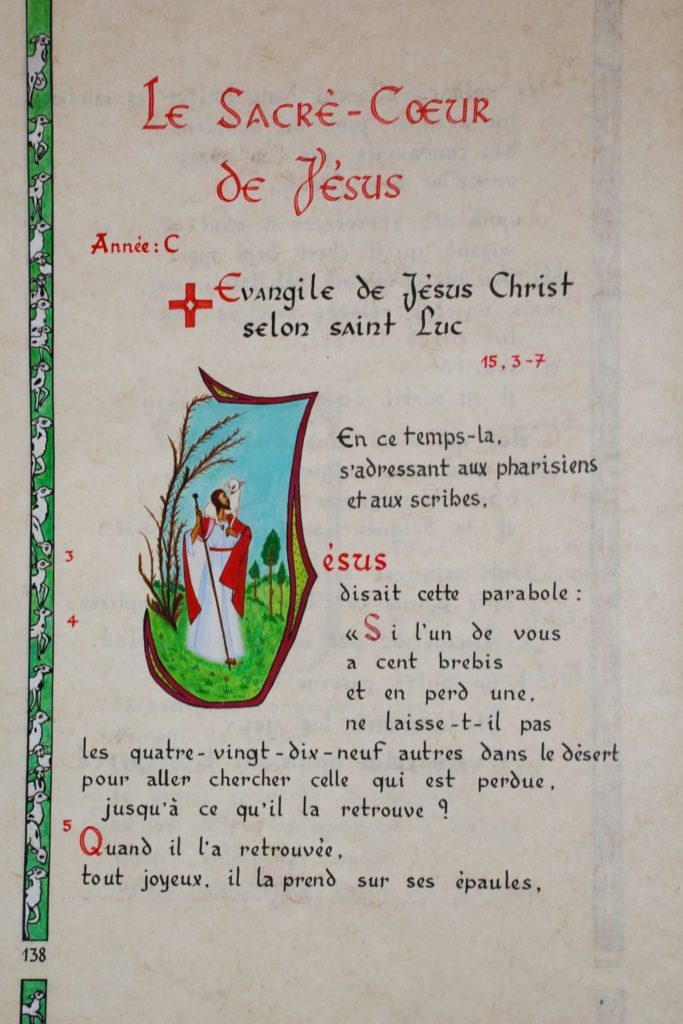 Le Sacré-Cœur
de Jésus
Année : C
Evangile de Jésus Christ
selon saint Luc
15, 3-7
En ce temps-la,
s'adressant aux pharisiens
et aux scribes,
3
Jésus
disait cette parabole :
4
« Si l'un de vous
a cent brebis
et en perd une,
ne laisse-t-il pas
les quatre-vingt-dix-neuf autres dans le désert
pour aller chercher celle qui est perdue,
jusqu'à ce qu'il la retrouve ?
5
Quand il l'a retrouvée,
tout joyeux, il la prend sur ses épaules,
138